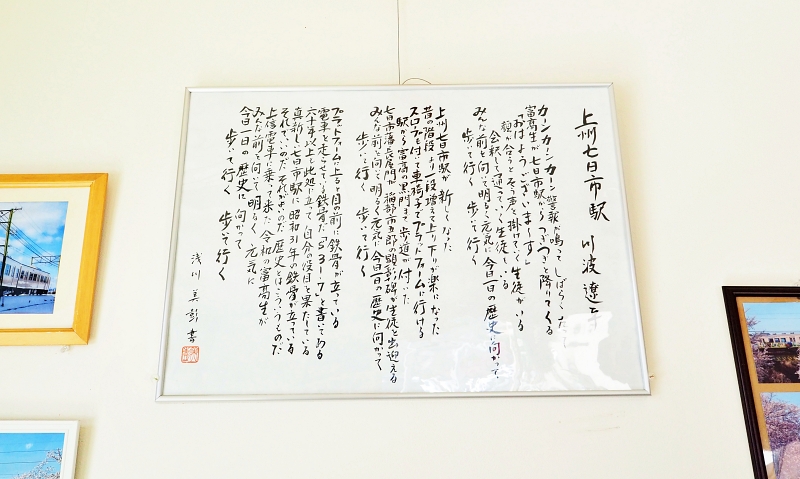 上州七日市駅 川波遼
カーンカーンカーン 警報が鳴って しばらくたつ
富高生が七日市駅からつぎつぎと降りてくる
「おはようございまーす」と
顔が合うとそう声を掛けていく生徒がいる
会釈して通っていく生徒もいる
みんな前を向いて明るく元気に今日一日の歴史に向かって
歩いて行く 歩いて行く
上州七日市駅が新しくなった
昔の階段より一段増えて上り下りが楽になった
スロープも付いて車椅子でプラットフォームに行ける
駅から富高の黒門まで歩道が付いた
七日市藩長屋門が 福部市五郎の顕彰碑が生徒を出迎える
みんな前を向いて明るく元気に今日一日の歴史に向かって
歩いて行く 歩いて行く
プラットフォームに上ると目の前に鉄骨が立っている
電車を走らせている鉄骨だ S31.7と書いてある
六十年以上も此処に立って自分の役目を果たしている
真新しい七日市駅に昭和31年の鉄骨が立っている
それでいいのだ それがよいのだ 歴史とはこういうものだ
上信電車に乗って来た令和の富高生が
みんな前を向いて明るく元気に
今日一日の歴史に向かって
歩いて行く 歩いて行く
浅川美彰書